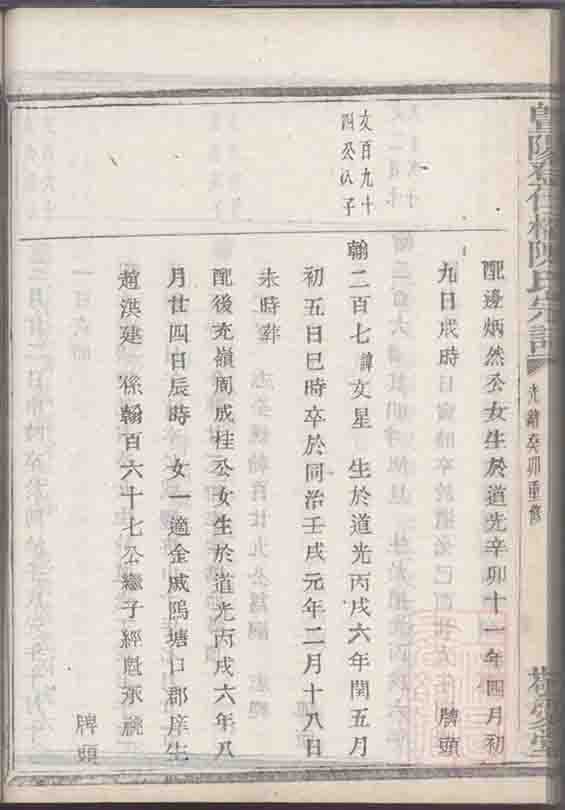 陳氏宗譜
光緒癸卯重修
配邊炳然公女生於道光辛卯十一年四月初
九日戌時
牌頭
文百九十
四公八子
翰二百七諱文星 生於道光丙戌六年閏五月
初五日巳時卒於同治壬戌元年二月十八日
未時葬
配後充嶺周成桂公女生於道光丙戌六年八
月廿四日辰時 女一適金戚隖塘口郡庠生
趙洪建 係翰百六十七公繼子經魁承祧
牌頭